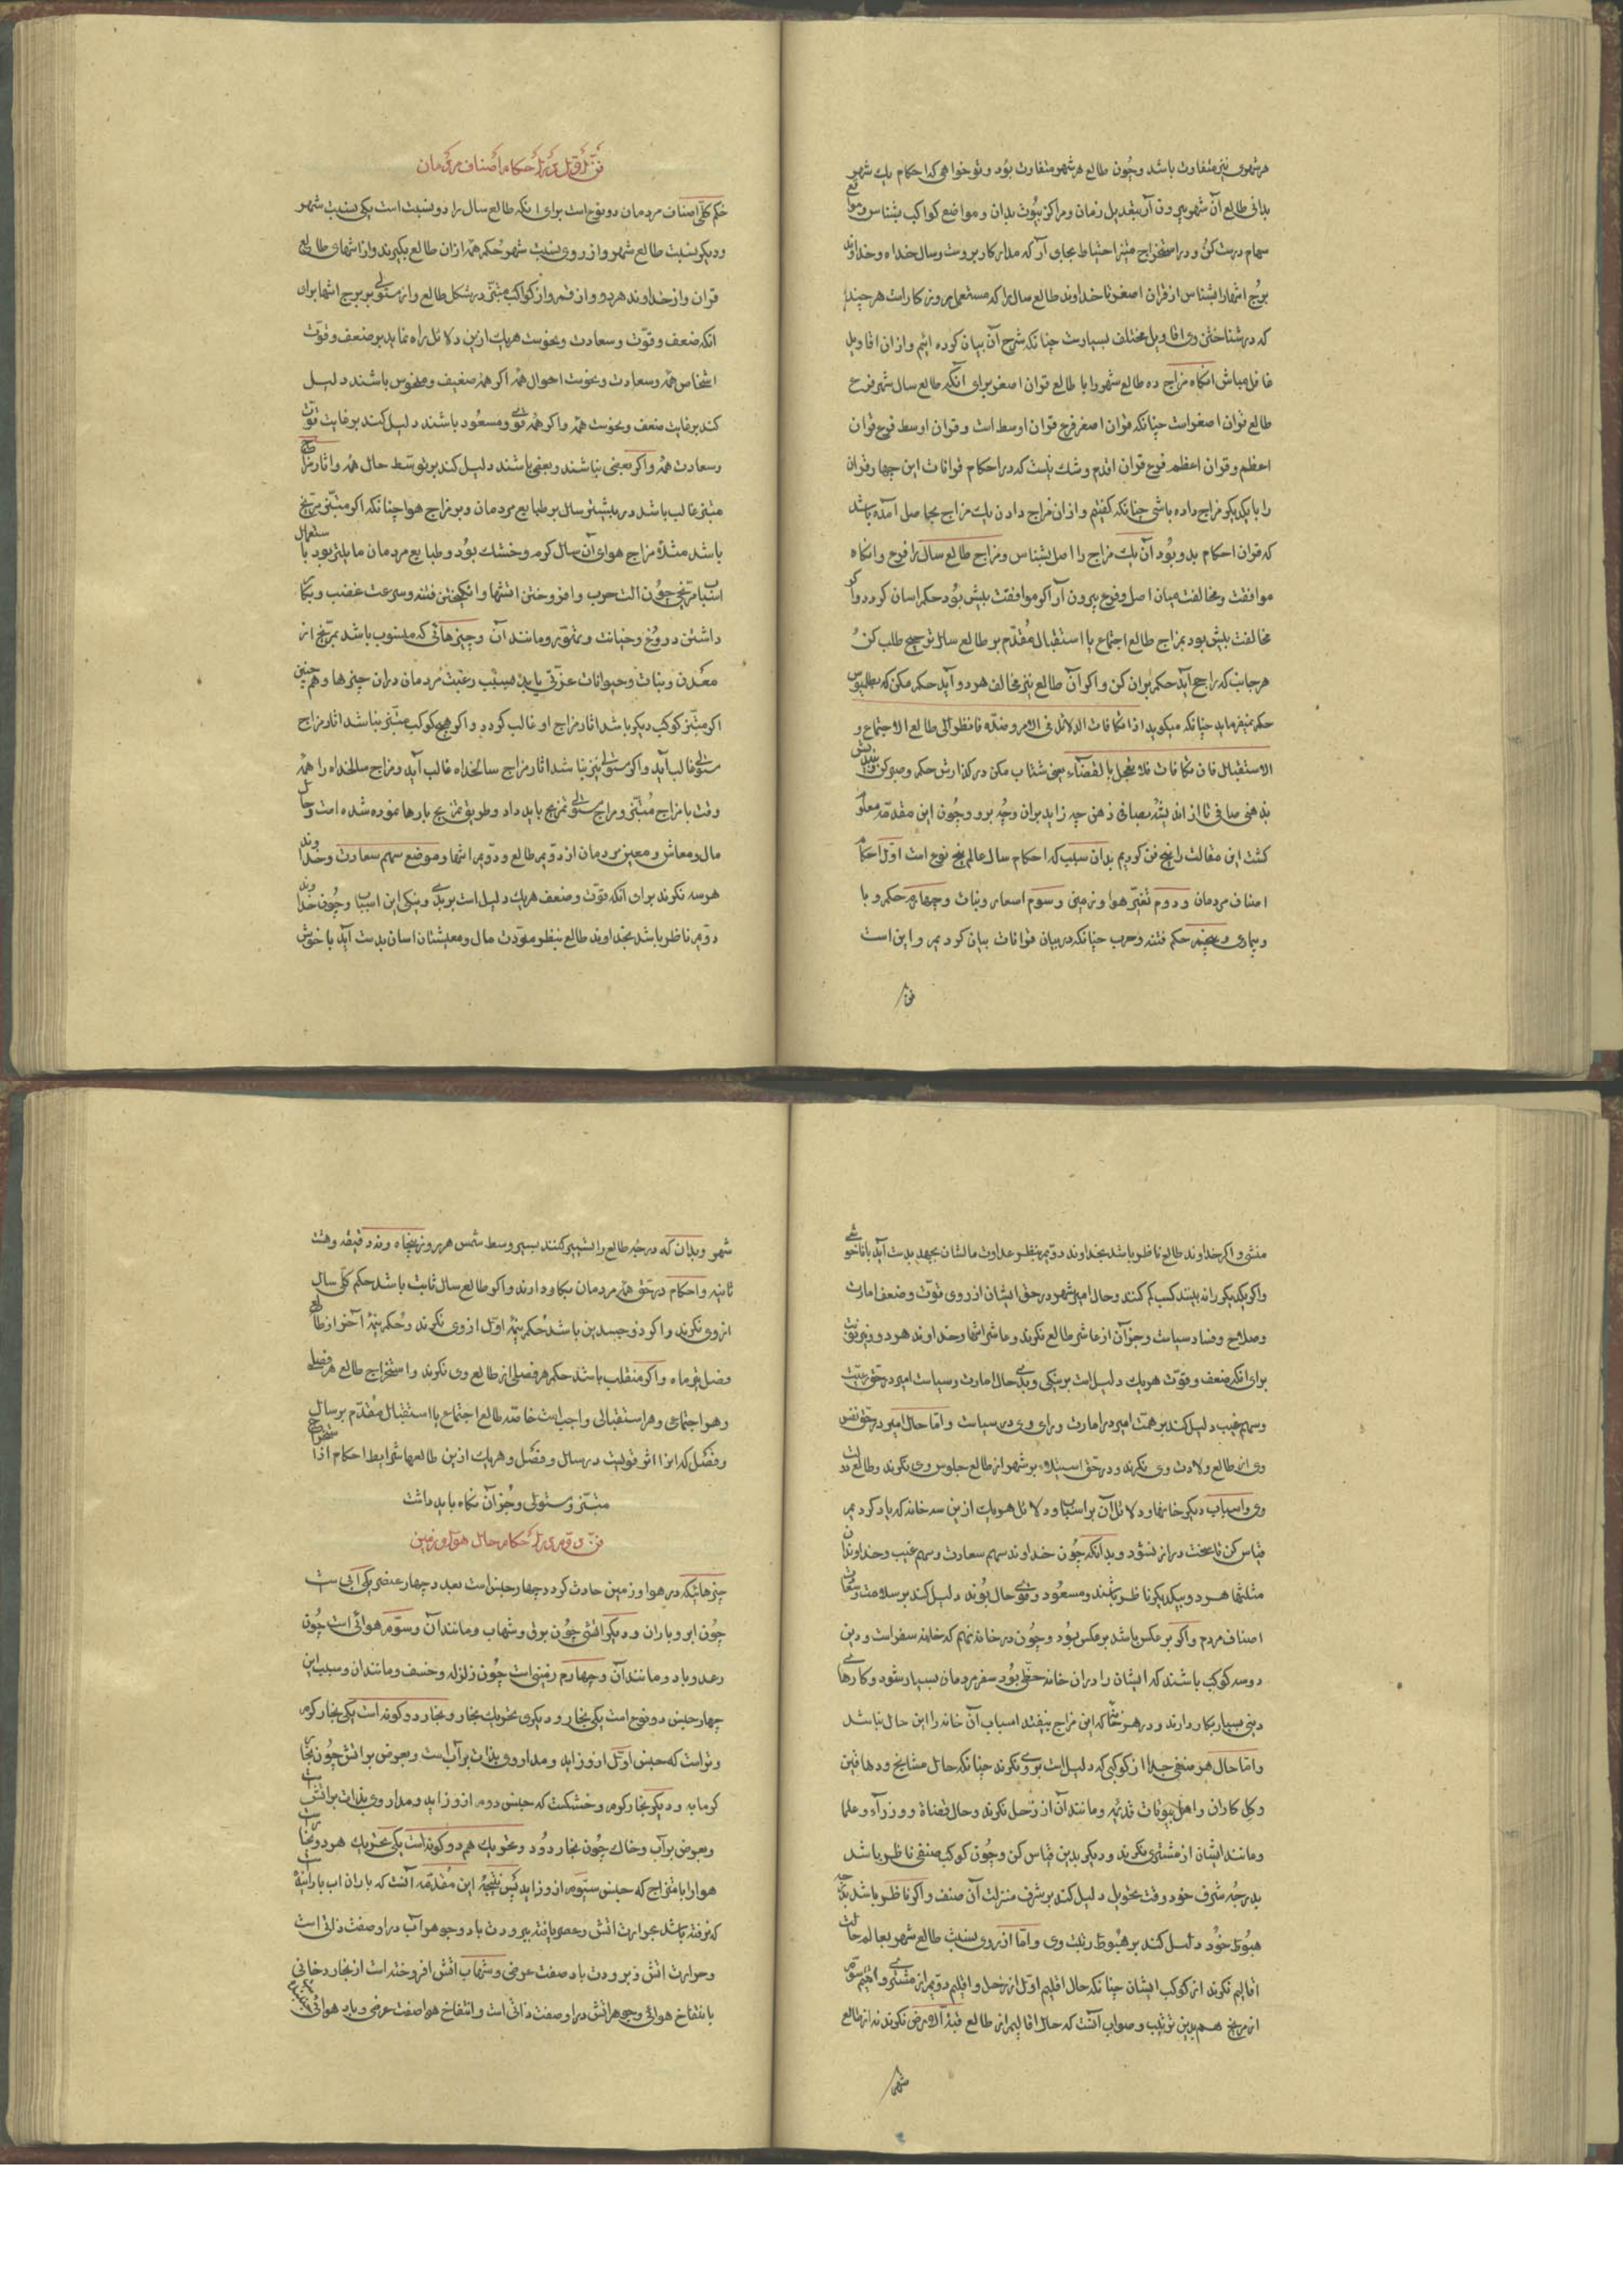 هر شهری نیز متفاوت باشد وچون طالع هر شهر متفاوت بود و تو خواهی که احکام یک شهر
بدانی طالع آن شهر بیرون آر بتعدیل زمان ومراکز بیوت بدان و مواضع کواکب بشناس و مواقع
سهام درست کن و در استخراج مبتز احتیاط بجای آر که مدار کار بروست وسال خداه وخداوند
برج انتها را بشناس از قران اصغر تا خداوند طالع سال را که مستعمل روزکارست هر چند
که در شناختن وی اقاویل مختلف بسیارست چنانکه شرح آن بیان کرده ایم وازان اقاویل
غافل مباش انکاه مزاج ده طالع شهر را با طالع قران اصغر برای آنکه طالع سال شهر فرع
طالع قران اصغراست چنانکه قران اصغر فرع قران اوسط است و قران اوسط فرع قران
اعظم و قران اعظم فرع قران اقدم وشک نیست که در احکام قرانات این چهار قران
را با یکدیکر مزاج داده باشی چنانکه کفتیم و ازان مزاج دادن یک مزاج بحاصل آمده باشد
که قران احکام بدو بود آن یک مزاج را اصل بشناس ومزاج طالع سال را فرع و انکاه
موافقت ومخالفت میان اصل وفرع بیرون آر اکر موافقت بیش بود حکم اسان کردد و اکر
مخالفت بیش بود بمزاج طالع اجتماع یا استقبال مقدم بر طالع سال ترجیح طلب کن
هر جانب که راجح آید حکم بران کن و اکر آن طالع نیز مخالف هر دو آید حکم مکن که بطلمیوس
حکم نمیفرماید چنانکه میکوید اذا تکافات الدلائل فی الامر وضده فانظر الی طالع الاجتماع و
الاستقبال فان تکافات فلا تعجل بالقضاء یعنی شتاب مکن در کذارش حکم وصبر کن و
بذهن صافی تا از اندیشه صافی ذهن چه زاید بران وجه برو وچون این مقدمه معلوم
کشت این مقالت را پنج فن کردیم بدان سبب که احکام سال عالم پنج نوع است اول احکام
اصناف مردمان و دوم تغیر هوا وزمین و سوم اسعار ونبات و چهارم حکم وبا
وبیماری و پنجم حکم فتنه وحرب چنانکه در بیان قرانات بیان کردیم و این است
فن
فن اول در احکام اصناف مردمان
حکم کلی اصناف مردمان دو نوع است برای انکه طالع سال را دو نسبت است یکی بنسبت شهر
ودیکر بنسبت طالع شهر واز روی نسبت شهر حکم همه ازان طالع بکیرند واز انتهای طالع
قران واز خداوند هردو واز قمر واز کواکب مبتز در شکل طالع واز مستولی بر برج انتها برای
انکه ضعف و قوت و سعادت و نحوست هریک ازین دلائل راه نماید بر ضعف و قوت
اشخاص همه وسعادت و نحوست احوال همه اکر همه ضعیف ومنحوس باشند دلیل
کند بر غایت ضعف و نحوست همه و اکر همه قوی ومسعود باشند دلیل کند بر غایت قوت
وسعادت همه و اکر بعضی نباشند و بعضی باشند دلیل کند بر توسط حال همه واثار مزاج
مبتز غالب باشد در بیشتر سال بر طبایع مردمان وبر مزاج هوا چنانکه اکر مبتز مریخ
باشد مثلا مزاج هوای آن سال کرم و خشک بود وطبایع مردمان مایلتر بود با ستعمال
اسباب مریخی چون الت حرب وافروختن اتشها وانکیختن فتنه وسرعت غضب و بکار
داشتن دروغ وخیانت و تهور ومانند آن و چیزهائی که منسوب باشد بمریخ از
معدن و نبات و حیوانات عزتی یابد بسبب رغبت مردمان دران چیزها و همچنین
اکر مبتز کوکب دیکر باشد اثار مزاج او غالب کردد و اکر هیچ کوکب مبتز نباشد اثار مزاج
مستولی غالب آید و اکر مستولی نیز نباشد اثار مزاج سالخداه غالب آید ومزاج سالخداه را همه
وقت با مزاج مبتز ومزاج مستولی تمزیج باید داد وطریق تمزیج بارها نموده شده است وحال
مال ومعاش ومعین مردمان از دویم طالع و دویم انتها وموضع سهم سعادت وخداوند
هر سه نکرند برای انکه قوت وضعف هریک دلیل است بر بدی ونیکی این اسباب وچون خداوند
دوم ناظر باشد بخداوند طالع بنظر مودت مال ومعیشتشان اسان بدست آید با خوش
منشی و اکر خداوند طالع ناظر باشد بخداوند دویم بنظر عداوت مالشان بجهد بدست آید با ناخوشی
واکر یکدیکر را نه بینند کسب کم کنند وحال امیر شهر در حق ایشان از روی قوت وضعف امارت
وصلاح وفساد سیاست وجز آن از عاشر طالع نکرند و عاشر انتها وخداوند هر دو
برای انکه ضعف وقوت هریک دلیل است بر نیکی وبدی حال امارت وسیاست امیر در حق رعیت
وسهم غیب دلیل کند بر همت امیر در امارت و رای وی در سیاست و اما حال امیر در حق نفس
وی از طالع ولادت وی نکرند و در حق استیلاء بر شهر از طالع جلوس وی نکرند وطالع
وی واسباب دیکر خانها ودلائل آن بر اسباب ودلائل هریک ازین سه خانه که یاد کردیم
قیاس کن تا سخن دراز نشود وبدانکه چون خداوند سهم سعادت وسهم غیب وخداوندان
مثلثها هر دو بیکدیکر ناظر باشند ومسعود وقوی حال بوند دلیل کند بر سلامت وسعادت
اصناف مردم و اکر بر عکس باشد بر عکس بود وچون در خانه نهم که خانه سفر است و دین
دو سه کوکب باشند که ایشان را دران خانه حظی بود سفر مردمان بسیار شود و کارهای
دینی بسیار بکار دارند و در هر خانه که این مزاج نیفتد اسباب آن خانه را این حال نباشد
واما حال هر صنفی جدا از کوکبی که دلیل است بروی نکرند چنانکه حال مشایخ ودهاقین
وکل کاران واهل بیوتات قدیم ومانند آن از زحل نکرند وحال قضاة ووزرآء وعلما
ومانند ایشان از مشتری نکرند و دیکر بدین قیاس کن وچون کوکب صنفی ناظر باشد
بدرجه شرف خود وقت تحویل دلیل کند بر شرف منزلت آن صنف و اکر ناظر باشد بدرجه
هبوط خود دلیل کند بر هبوط رتبت وی واما از روی نسبت طالع شهر بعالم حالت
اقالیم نکرند از کوکب ایشان چنانکه حال اقلیم اول از زحل و اقلیم دویم از مشتری و اقلیم سوم
از مریخ هم برین ترتیب وصواب آنست که حال اقالیم از طالع قبة الارض نکرند نه از طالع
شهر
شهر وبدان که درجه طالع را تسییر کنند بسیر وسط شمس هر روز پنجاه ونه دقیقه وهشت
ثانیه واحکام در حق همه مردمان بکار دارند و اکر طالع سال ثابت باشد حکم کلی سال
از وی نکرند و اکر ذو جسدین باشد حکم نیمه اول از وی نکرند وحکم نیمه آخر از طالع
فصل تیرماه و اکر منقلب باشد حکم هر فصلی از طالع وی نکرند واستخراج طالع هر فصلی
وهر اجتماعی وهر استقبالی واجب است خاصه طالع اجتماع یا استقبال مقدم بر سال
وفصل که انرا اثر قویست در سال وفصل وهریک ازین طالعها شرایط احکام از استخراج
مبتز ومستولی وجز آن نکاه باید داشت
فن دوم در احکام حال هوا وزمین
چیزهائیکه در هوا وزمین حادث کردد چهار جنس است بعدد چهار عنصر یکی آبی است
چون ابر و باران ودیکر اتشی چون برق وشهاب ومانند آن وسوم هوائی است چون
رعد وباد ومانند آن وچهارم زمینی است چون زلزله وخسف ومانند ان وسبب این
چهار جنس دو نوع است یکی بخار ودیکری تحریک بخار وبخار دو کونه است یکی بخار کرم
وتراست که جنس اول ازو زاید ومدار وی بذات بر آب است وبعرض بر اتش چون بخار
کرمابه ودیکر بخار کرم وخشکست که جنس دوم ازو زاید ومدار وی بذات بر اتش است
وبعرض بر آب وخاک چون بخار دود وتحریک هم دو کونه است یکی تحریک هر دو بخار است
هوا را بامتزاج که جنس سیوم ازو زاید پس نتیجه این مقدمه آنست که باران اب
که نرفته باشد بحرارت اتش وعصر یافته ببرودت باد وجوهر آب در او صفت ذاتی است
وحرارت اتش وبرودت باد صفت عرضی وشهاب اتش افروخته است از بخار دخانی
با نتفاخ هوائی وجوهر اتش در او صفت ذاتی است وانتفاخ هوا صفت عرضی وباد هوائی